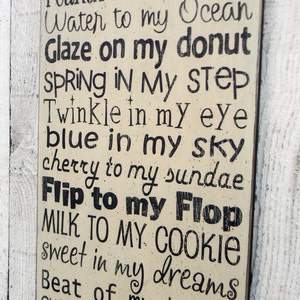 Water to my Ocean
Glaze on my donut
SPRING IN MY STEP
Twinkle in my eye
blue in my sky
cherry to my sundae
Flip to my Flop
MILK TO MY COOKIE
sweet in my dreams
Beat of my